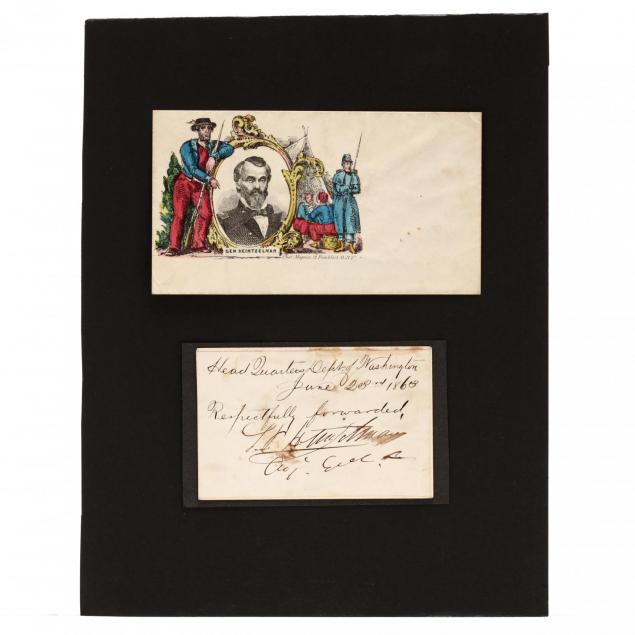 GEN HEINTZELMAN
Chas. Magnus, 12 Frankfort St. N.Y.
Head Quarters Dept of Washington
June 23rd 1863
Respectfully forwarded,
S. P. Heintzelman
Maj. Genl.